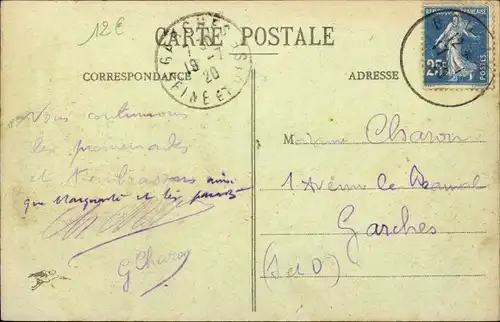 12€
CARTE POSTALE
GARCHES
19 -7
20
SEINE ET OISE
RÉPUBLIQUE FRANÇAISE
25c
POSTES
CORRESPONDANCE
ADRESSE
Nous continuons
les promenades
et t'embrassons ainsi
que Marguerite et les
G Charon
Madame Charon
1 Avenue
Garches
(S et O)